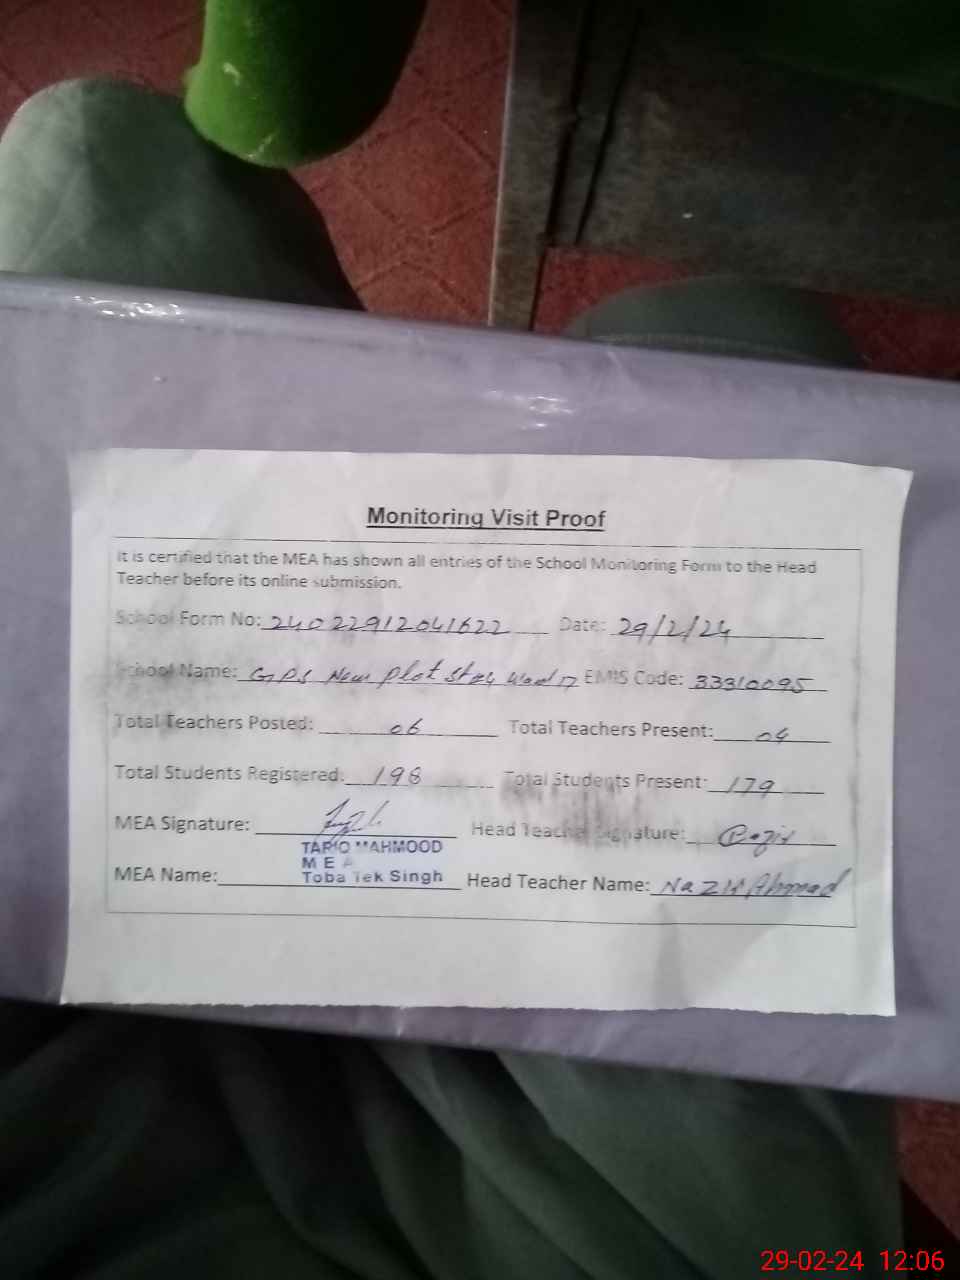 Monitoring Visit Proof
It is certified that the MEA has shown all entries of the School Monitoring Form to the Head
Teacher before its online submission.
School Form No: 24022912041622 Date: 29/2/24
School Name: GPS New Plot Ward 17 EMIS Code: 33310095
Total Teachers Posted: 06 Total Teachers Present: 04
Total Students Registered: 198 Total Students Present: 179
MEA Signature: Head Teacher Signature: Nazir
TARIQ MAHMOOD
MEA
MEA Name: Toba Tek Singh Head Teacher Name: Nazir Ahmad
29-02-24 12:06